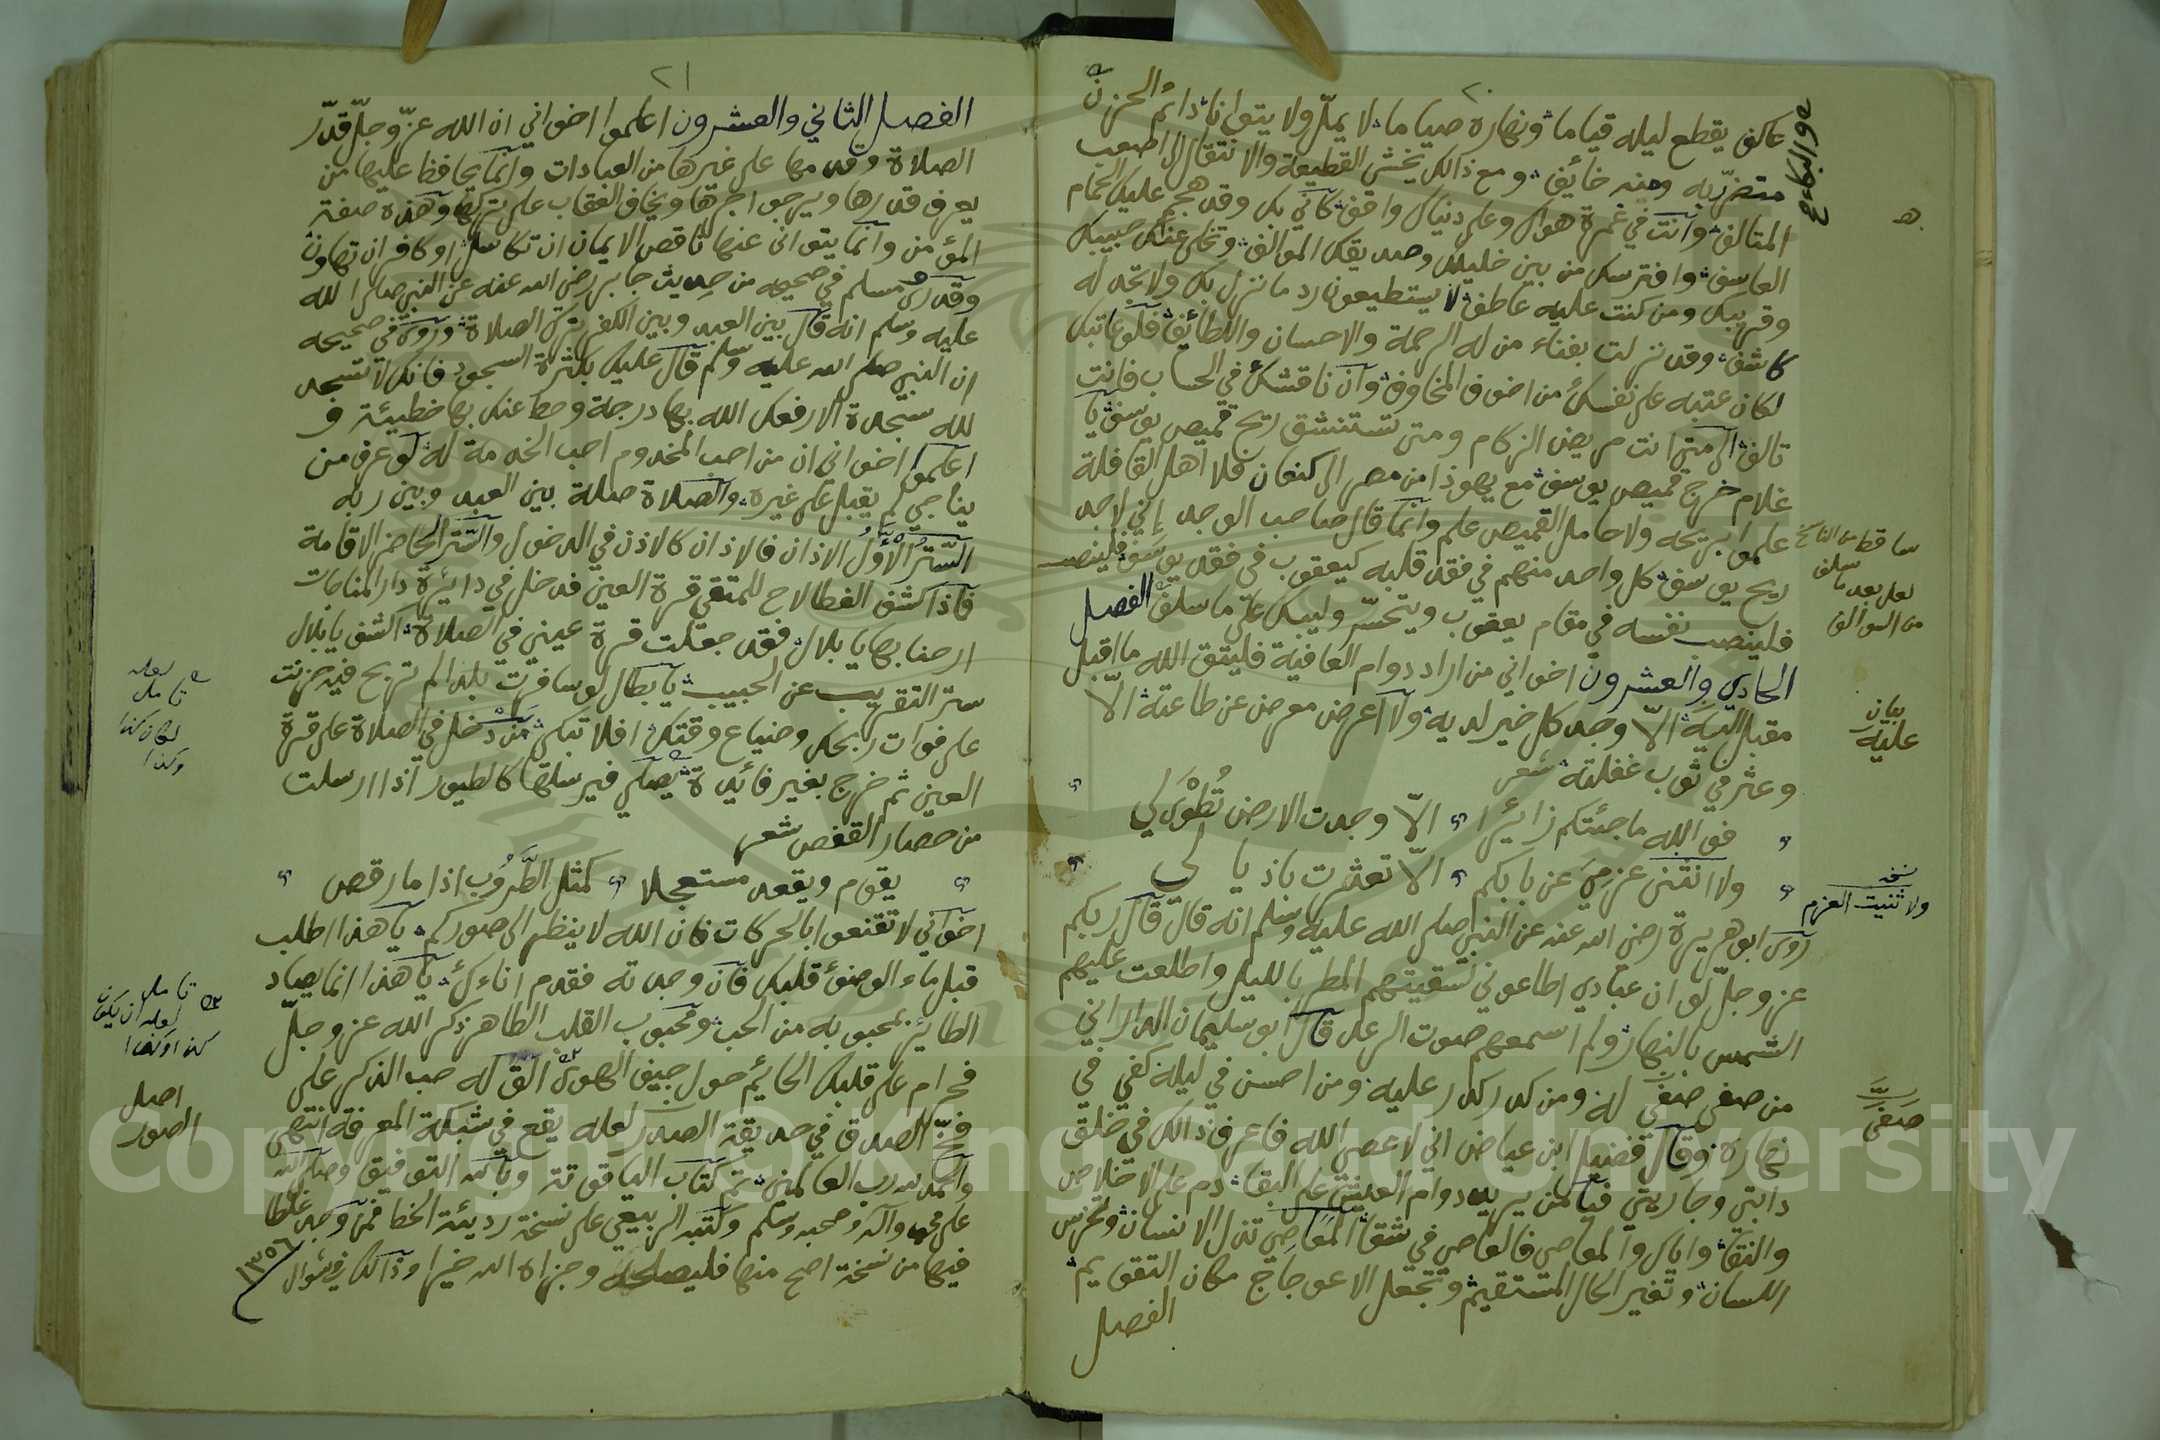 ٢٠
عاكف يقطع ليله قياما ونهاره صياما لا يملّ ولا يتوانا دائم الحزن
والبكاء
متضرّبه ومنه خائف ومع ذالك يخشى القطيعة والانتقال الى اصعب
المتالف وانت في غمرة هواك وعلى دنياك واقف كاني بك وقد هجم عليك الحمام
العاسف وافترسك من بين خليلك وصديقك الموالف وتخلى عنك حبيبك
وقريبك ومن كنت عليه عاطف لا يستطيعون رد ما نزل بك ولا تجد له
كاشف وقد نزلت بفناء من له الرحمة والاحسان واللطائف فلو عاتبك
لكان عتبه على نفسك من اخوف المخاوف وان ناقشك في الحساب فانت
تالف الى متى انت مريض الزكام ومتى تستنشق ريح قميص يوسف يا
غلام خرج قميص يوسف مع يهوذا من مصر الى كنعان فلا اهل القافلة
علموا بريحه ولا حامل القميص علم وانما قال صاحب الوجد إني لاجد
ريح يوسف كل واحد منهم في فقد قلبه كيعقوب في فقد يوسف فلينصب
فلينصب نفسه في مقام يعقوب ويتحسّر وليبك على ما سلف الفصل
الحادي والعشرون اخواني من اراد دوام العافية فليتق الله ما اقبل
مقبل اليه الاّ وجد كل خير لديه ولا اعرض معرض عن طاعته الاّ
وعثر في ثوب غفلته شعر
فو الله ما جئتكم زائرا الاّ وجدت الارض تُطْوَى لي
ولا انثنى عزمي عن بابكم الاّ تعثرت باذيا لي
روى ابو هريرة رضي الله عنه عن النبي صلى الله عليه وسلم انه قال قال ربكم
عز وجلّ لو ان عبادي اطاعوني لسقيتهم المطر بالليل واطلعت عليهم
الشمس بالنهار ولم اسمعهم صوت الرعد قال ابو سليمان الداراني
من صفى صفّي له ومن كدر كدر عليه ومن احسن في ليلة كفي في
نهاره وقال فضيل ابن عياض اني لاعصي الله فاعرف ذالك في خلق
دابتي وجاريتي فيا من يريد دوام العيش على البقا دم على الاخلاص
والنقا واياك والمعاصي فالعاصي في شقا المعاصي تذل الانسان وتخرس
اللسان وتغير الحال المستقيم وتجعل الاعوجاج مكان التقويم
الفصل
ساقط من الناسخ
لعل بعد ما سلف
من السوالف
بيان
عليه
نسخه
ولا ثنيت العزم
صَفَى
٢١
الفصل الثاني والعشرون اعلموا اخواني ان الله عزّ وجلّ قدّر
الصلاة وقدمها على غيرها من العبادات وانما يحافظ عليها من
يعرف قدرها ويرجو اجرها ويخاف العقاب على تركها وهذه صفة
المؤمن وانما يتوانى عنها ناقص الايمان ان تكاسل او كافر ان تهاون
وقد روى مسلم في صحيحه من حديث جابر رضي الله عنه عن النبي صلى الله
عليه وسلم انه قال بين العبد وبين الكفر ترك الصلاة وروى في صحيحه
ان النبي صلى الله عليه وسلم قال عليك بكثرة السجود فانك لا تسجد
لله سجدة الا رفعك الله بها درجة وحط عنك بها خطيئة و
اعلموا اخواني ان من احب المخدوم احب الخدمة له لو عرف من
يناجي لم يقبل على غيره والصلاة صلة بين العبد وبين ربه
السّتر الاوّل الاذان فالاذان كالاذن في الدخول والستر الحاضر الاقامة
فاذا كشف الغطا لاح للمتقي قرة العين فدخل في دائرة دار المناجات
ارحنا بها يا بلال فقد جعلت قرة عيني في الصلاة اكشف يا بلال
ستر التقريب عن الحبيب يا بطال لو سافرت بلدا لم تربح فيه حزنت
على فوات ربحك وضياع وقتك افلا تبكي مَنْ دخل في الصلاة على قرة
العين ثم خرج بغير فائدة يصلي فيرسلها كالطيور اذا ارسلت
من حصار القفص شعر
يقوم ويقعد مستعجلا كمثل الطَّرُوب اذا ما رقص
اخواني لا تقنعوا بالحركات فان الله لا ينظر الى صوركم يا هذا اطلب
قبل ماء الوضوء قلبك فان وجدته فقدم اناءك يا هذا انما يصاد
الطائر بمحبوبه من الحب ومحبوب القلب الطاهر ذكر الله عز وجلّ
فحرام على قلبك الحائم حول جيف الهوى الق له حب الذكر على
فخّ الصدق في حديقة الصدر لعله يقع في شبكة المعرفة انتهى
والحمد لله رب العالمين تم كتاب الياقوتة وبالله التوفيق وصلى الله
على محمد وآله وصحبه وسلم وكتبه الربيعي على نسخة رديئة الخط فمن وجد غلطا
فيها من نسخة اصح منها فليصلحه وجزاه الله خيرا وذالك في شوال ١٣٥٦
لعله
تامل
لكان كذا
وكذا
تامل
لعله ان يكون
كذا او كذا
اصل
الصور